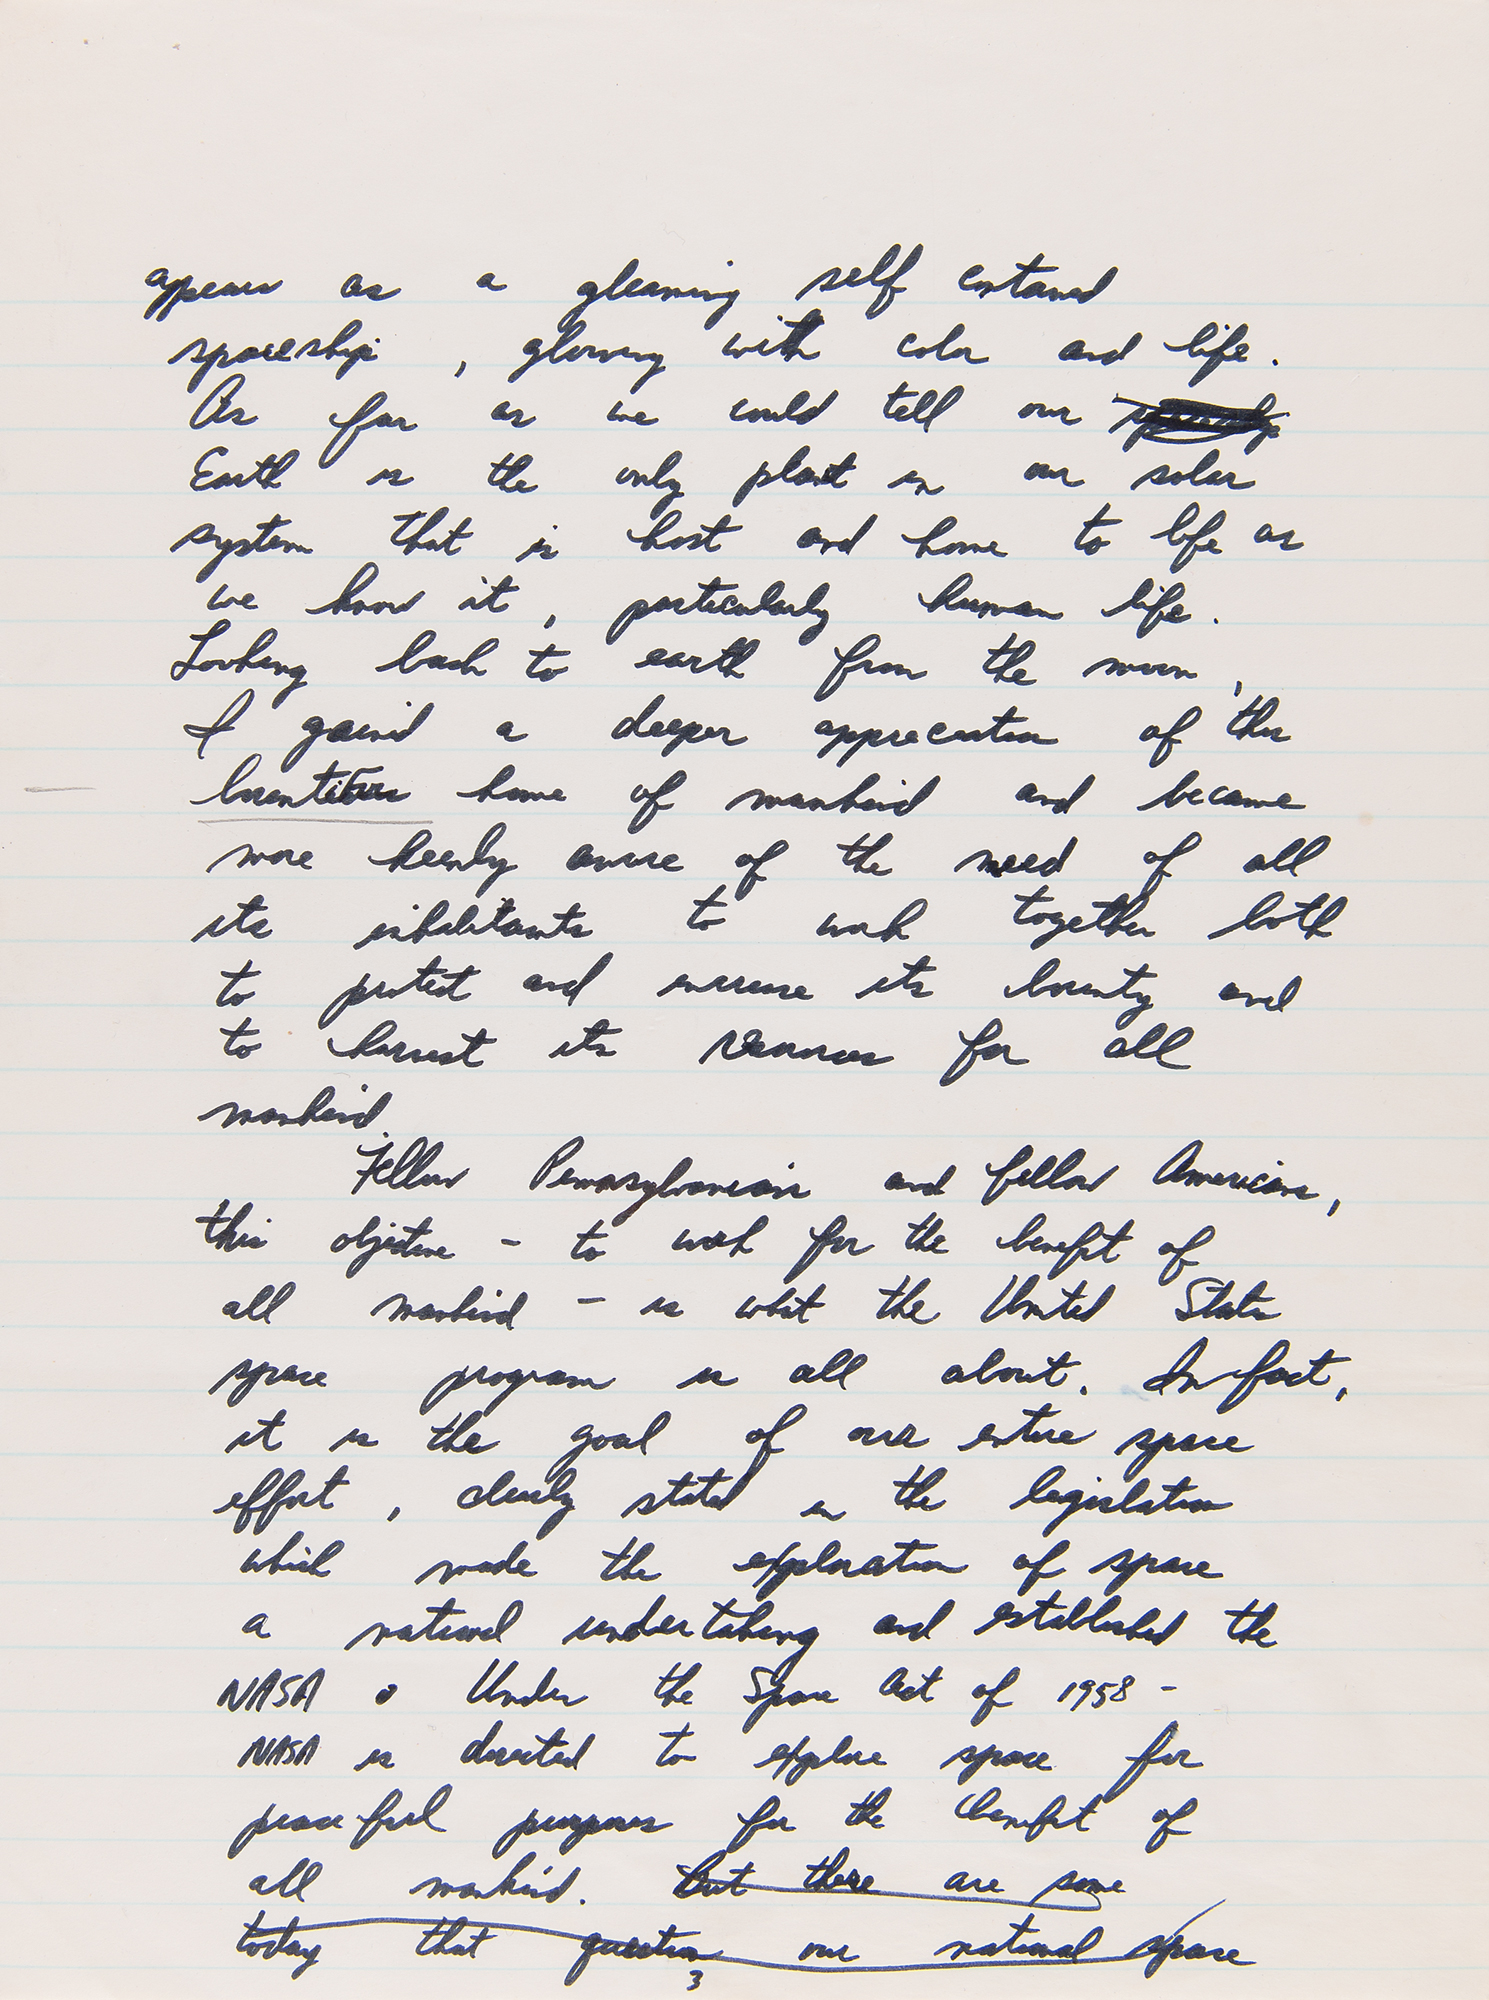 appears as a gleaming self contained
spaceship, glowing with color and life.
As far as we could tell our
Earth is the only planet in our solar
system that is host and home to life as
we know it, particularly human life.
Looking back to earth from the moon,
I gained a deeper appreciation of this
bountiful home of mankind and became
more keenly aware of the need of all
its inhabitants to work together both
to protect and increase its bounty and
to harvest its resources for all
mankind.
Fellow Pennsylvanians and fellow Americans,
this objective - to work for the benefit of
all mankind - is what the United States
space program is all about. In fact,
it is the goal of our entire space
effort, clearly stated in the legislation
which made the exploration of space
a national undertaking and established the
NASA. Under the Space Act of 1958 -
NASA is directed to explore space for
peaceful purposes for the benefit of
all mankind. But there are some
today that question our national space
3